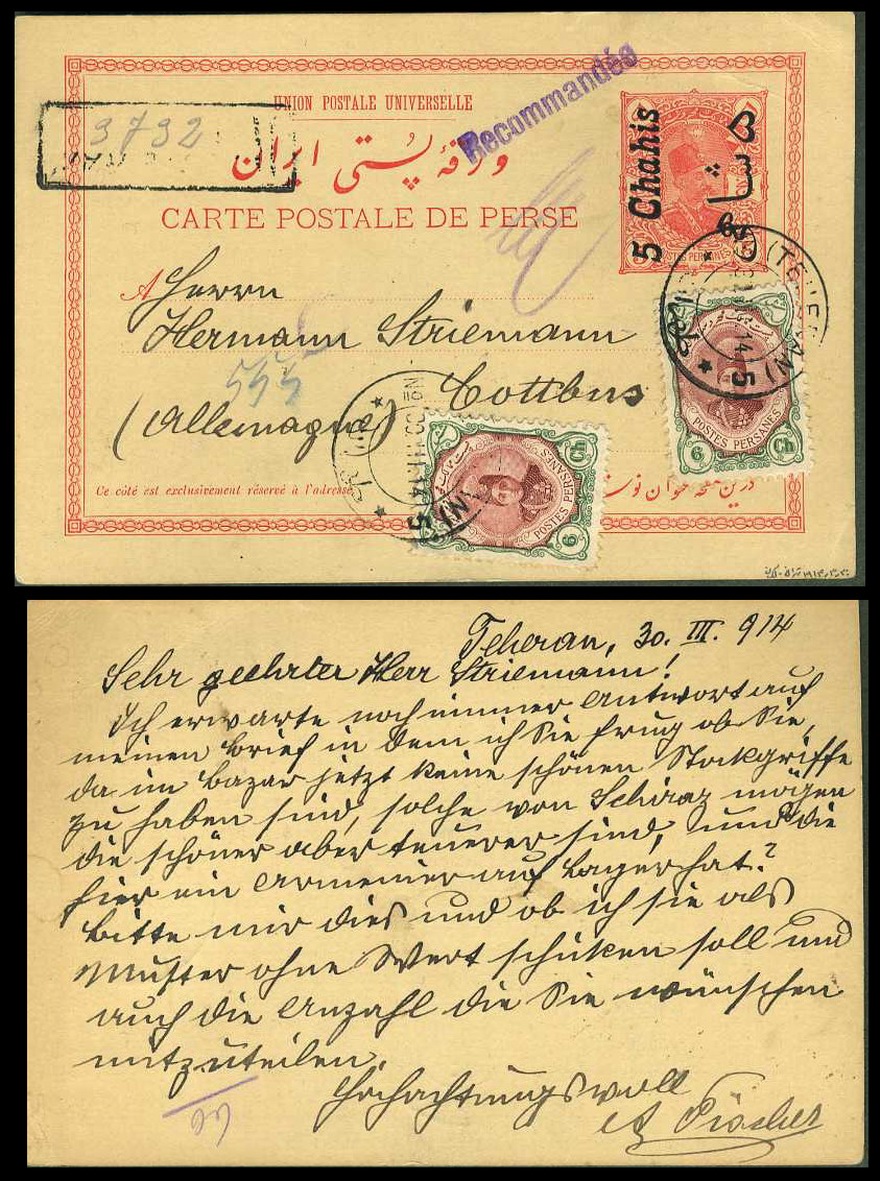 Recommandés
UNION POSTALE UNIVERSELLE
3732
ورقهٔ پستی ایران
CARTE POSTALE DE PERSE
5 Chahis
A Herrn
Hermann Striemann
555
Cottbus
(Allemagne)
(TEHERAN)
14 5
POSTES PERSANES
6 Ch
Ch 6
POSTES PERSANES
14 5
Ce côté est exclusivement réservé à l'adresse
Teheran, 30. III. 914
Sehr geehrter Herr Striemann!
Ich erwarte noch immer Antwort auf
meinen Brief in dem ich Sie frug ob Sie,
da im Bazar jetzt keine schönen Stockgriffe
zu haben sind, solche von Schiraz mögen
die schöner aber teuerer sind, und die
hier ein Armenier auf Lager hat?
Bitte mir dies und ob ich sie als
Muster ohne Wert schicken soll und
auch die Anzahl die Sie wünschen
mitzuteilen.
Hochachtungsvoll